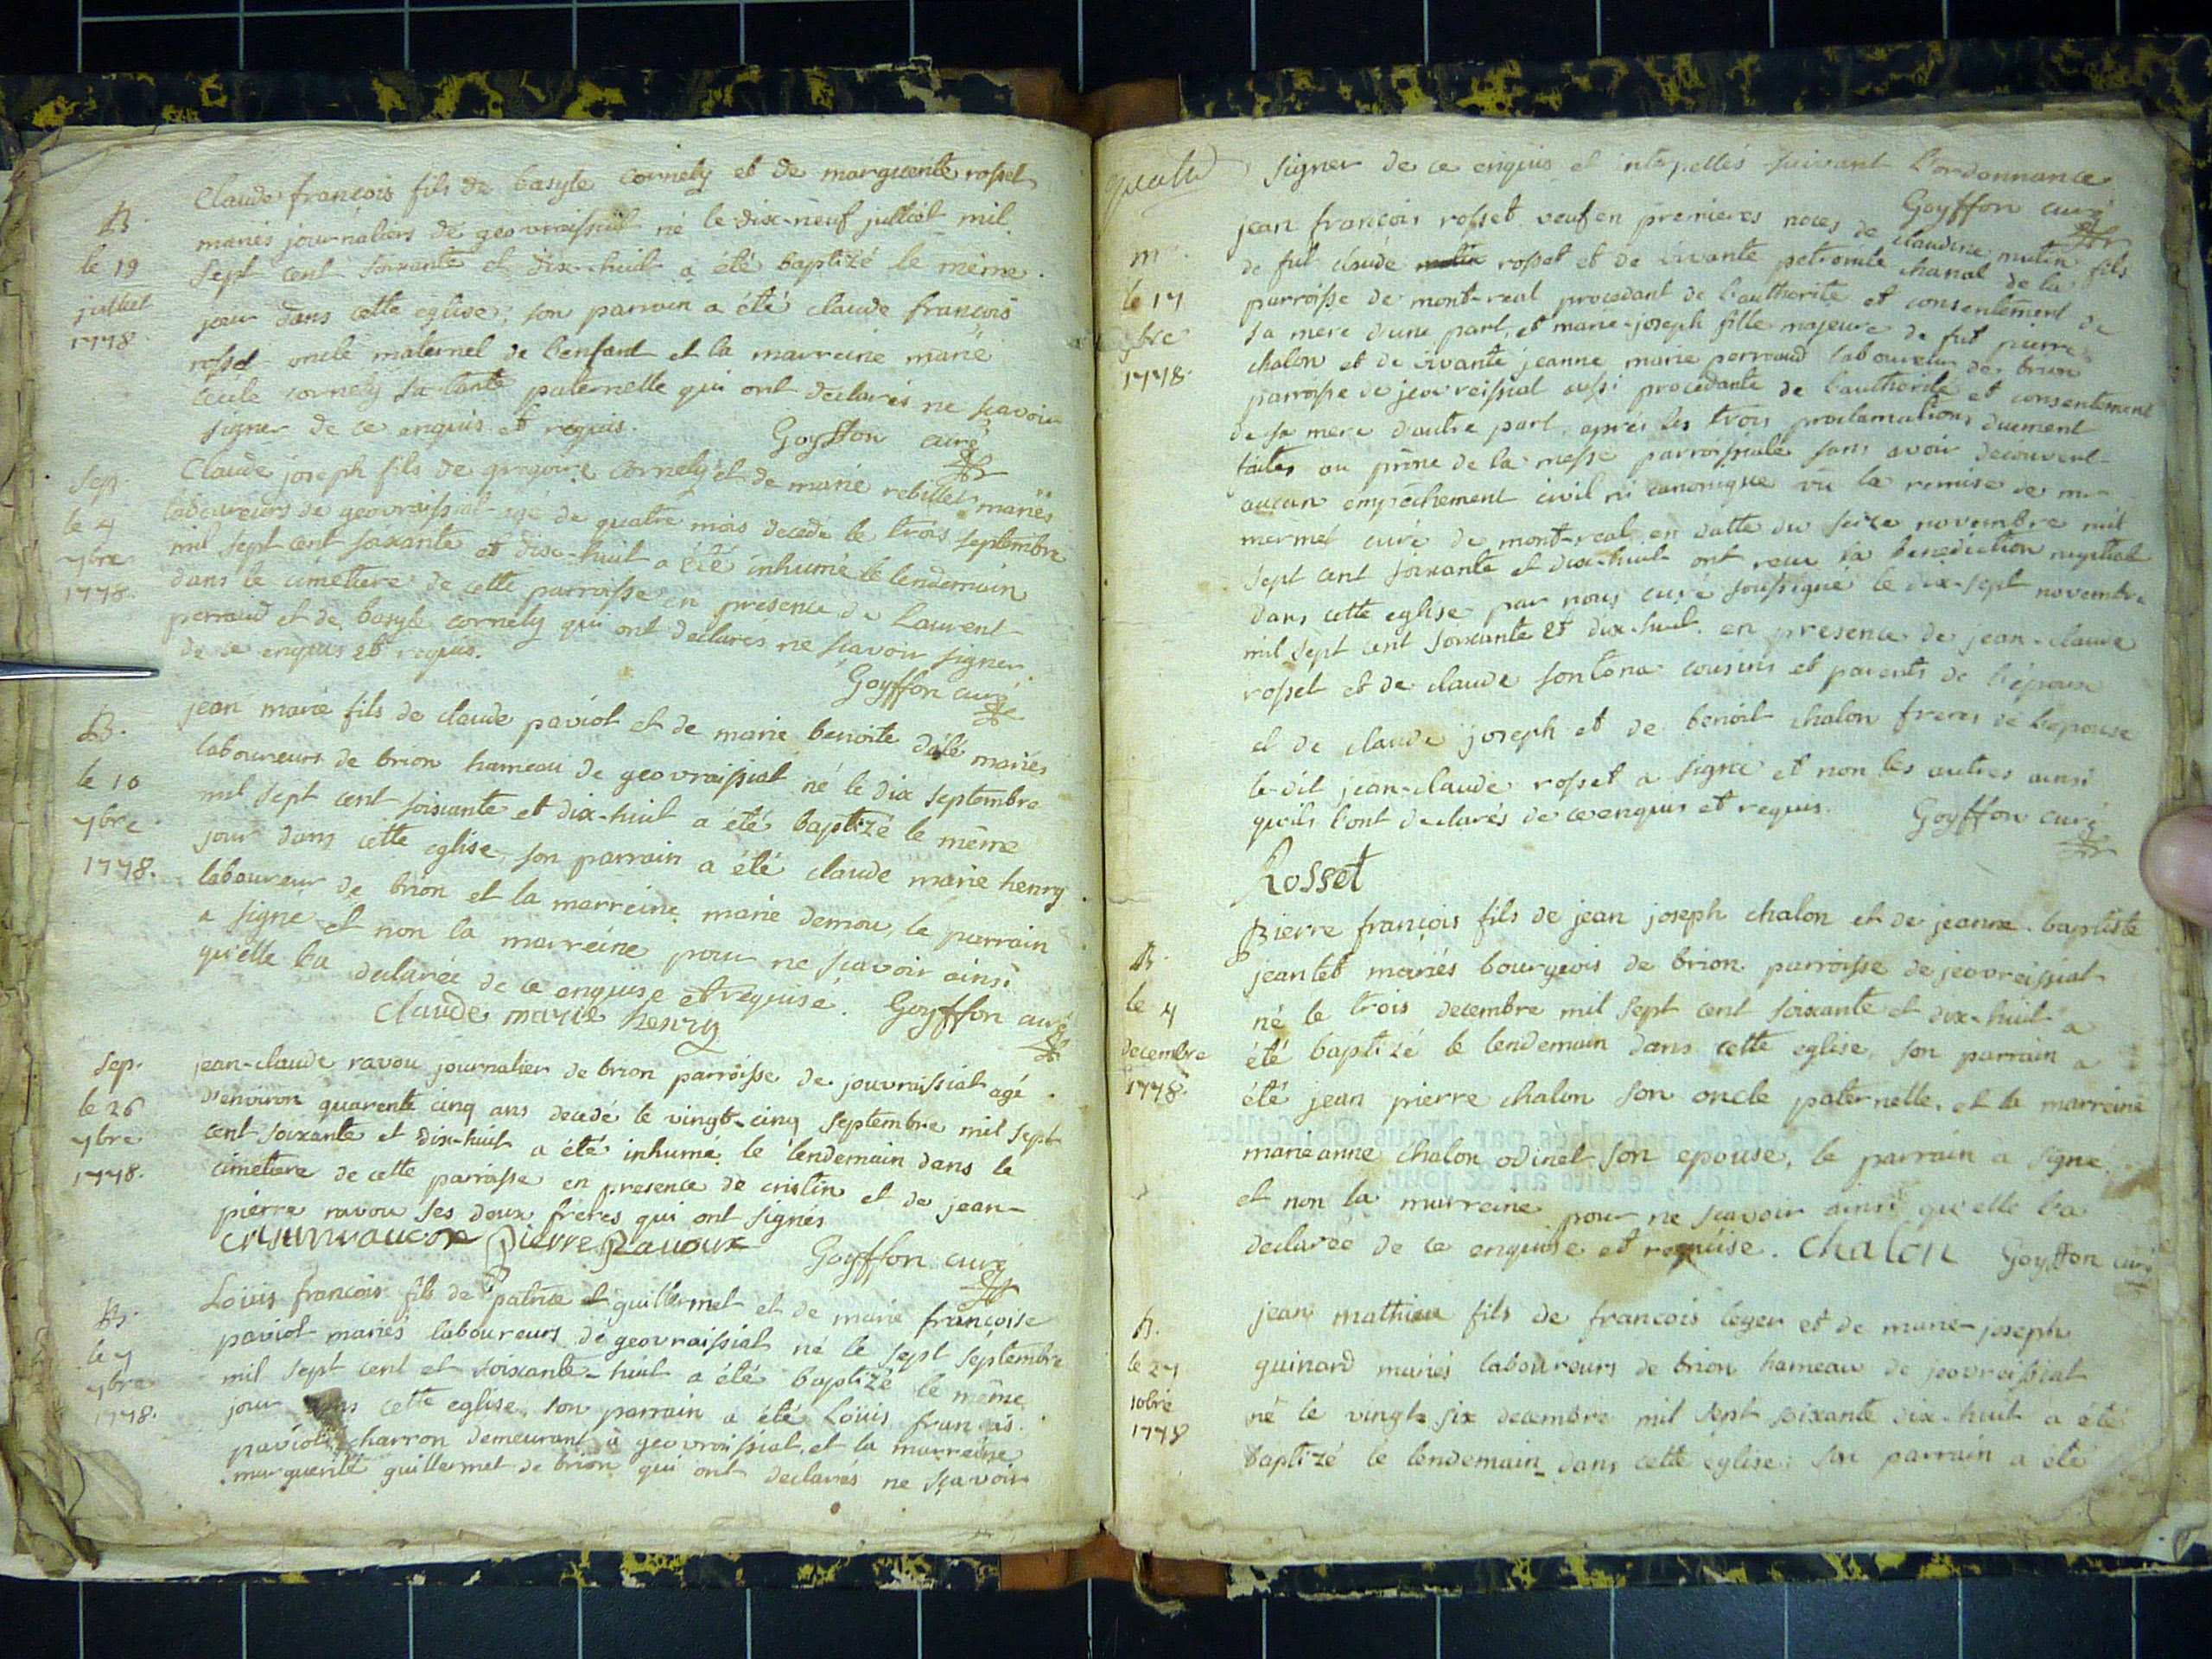 Claude françois fils de basyle cornely et de marguerite rosset
B.
mariés journaliers de geovraissiat né le dix-neuf julliet mil
le 19
sept cent soixante et dix-huit a été baptizé le même
julliet
jour dans cette eglise; son parrain a été claude françois
1778.
rosset oncle maternel de l'enfant et la marreine marie
cécile cornely sa tante paternelle qui ont declarés ne scavoir
signer de ce enquis et requis. Goyffon curé
Sep.
Claude joseph fils de gregoire cornely et de marie rebillet mariés
le 4
laboureurs de geovraissiat agé de quatre mois decedé le trois septembre
7bre
mil sept cent soixante et dix-huit a été inhumé le lendemain
1778.
dans le cimetiere de cette parroisse en presence de Laurent
perraud et de basyle cornely qui ont declarés ne scavoir signer
de ce enquis et requis. Goyffon curé
B.
jean marie fils de claude paviot et de marie benoite dalé mariés
laboureurs de brion hameau de geovraissiat né le dix septembre
le 10
mil sept cent soixante et dix-huit a été baptizé le même
7bre
jour dans cette eglise, son parrain a été claude marie henry
1778.
laboureur de brion et la marreine marie demou, le parrain
a signé et non la marreine pour ne scavoir ainsi
qu'elle l'a declarée de ce enquise et requise. Goyffon curé
claude marie henry
Sep.
jean-claude ravou journalier de brion parroisse de jouvraissiat agé
le 26
d'environ quarente cinq ans decedé le vingt-cinq septembre mil sept
7bre
cent soixante et dix-huit a été inhumé le lendemain dans le
1778.
cimetiere de cette parroisse en presence de cristin et de jean-
pierre ravou ses deux freres qui ont signés
pierre Ravoux Goyffon curé
B.
Loüis françois fils de patrice guillermet et de marie françoise
le 7
paviot mariés laboureurs de geovraissiat né le sept septembre
7bre
mil sept cent et soixante-huit a été baptizé le même
1778.
jour dans cette eglise, son parrain a été Loüis françois
paviot charron demeurant à geovraissiat, et la marreine
marguerite guillermet de brion qui ont declarés ne scavoir
signer de ce enquis et interpellés suivant l'ordonnance
Goyffon curé
m
jean françois rosset veuf en premieres noces de claudine mutin fils
le 17
de fut claude rosset et de vivante petronile chanal de la
9bre
parroisse de mont-real procedant de l'authorité et consentement de
1778.
sa mere d'une part, et marie-joseph fille majeure de fut pierre
chalon et de vivante jeanne marie perraud laboureur de brion
parroisse de jeovreissiat aussi procedante de l'authorité et consentement
de sa mere d'autre part, après les trois proclamations duement
faites au prône de la messe parroissiale sans avoir decouvert
aucun empêchement civil ni canonique vû la remise de mr
mermet curé de mont-real en datte du seize novembre mil
sept cent soixante et dix-huit ont reçu la benediction nuptial
dans cette eglise par nous curé soussigné le dix-sept novembre
mil sept cent soixante et dix-huit. en presence de jean-claude
rosset et de claude fontona cousins et parents de l'époux
et de claude joseph et de benoit chalon freres de l'epouse
le-dit jean-claude rosset a signé et non les autres ainsi
qu'ils l'ont declarés de ce enquis et requis. Goyffon curé
Rosset
B.
Pierre françois fils de jean joseph chalon et de jeanne-baptiste
jeantet mariés bourgeois de brion parroisse de jeovreissiat
le 4
né le trois decembre mil sept cent soixante et dix-huit a
decembre
été baptizé le lendemain dans cette eglise, son parrain a
1778.
été jean pierre chalon son oncle paternelle, et la marreine
marieanne chalon odinet son epouse, le parrain a signé
et non la marreine pour ne scavoir ainsi qu'elle l'a
declarée de ce enquise et requise. chalon Goyffon curé
B.
jean mathieu fils de francois leger et de marie-joseph
le 27
guinard mariés laboureurs de brion hameau de jeovreissiat
10bre
né le vingt-six decembre mil sept soixante dix-huit a été
1778
baptizé le lendemain dans cette eglise: son parrain a été